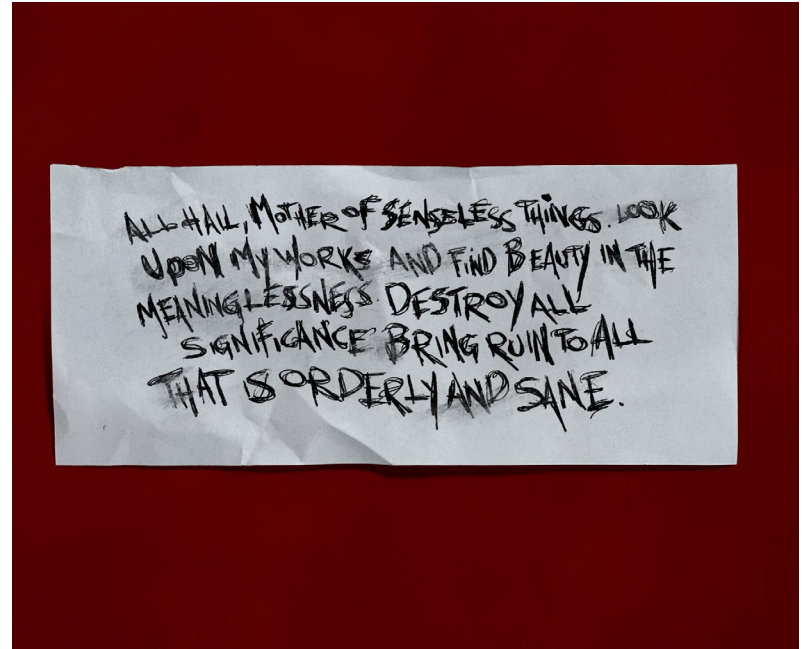 ALL HAIL, MOTHER OF SENSELESS THINGS. LOOK
UPON MY WORKS AND FIND BEAUTY IN THE
MEANINGLESSNESS. DESTROY ALL
SIGNIFICANCE. BRING RUIN TO ALL
THAT IS ORDERLY AND SANE.